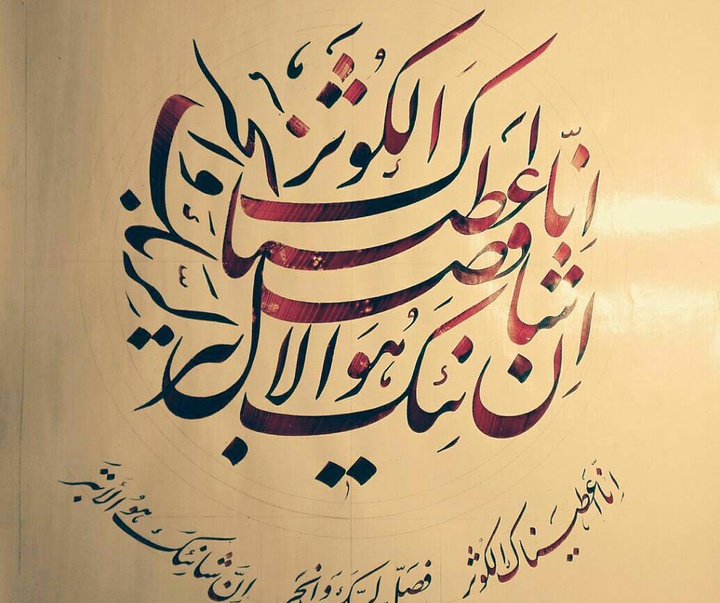 إنّا أعطيناك الكوثر
فصل لربك وانحر
إن شانئك هو الابتر
إنّا أعطيناك الكوثر
فصلّ لربّك وانحر
إنّ شانئك هو الأبتر